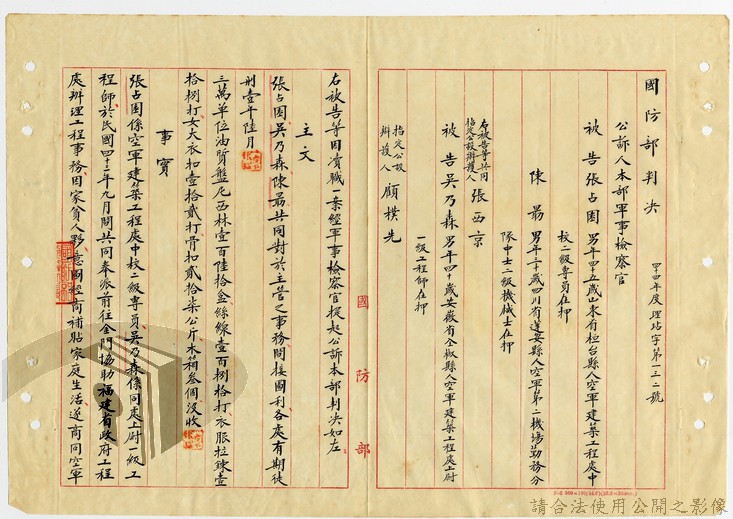 國防部判決
四十四年度理玷字第一三二號
公訴人本部軍事檢察官
被告張占國男年四十五歲山東省桓台縣人空軍建築工程處中
校二級專員在押
陳昜男年三十歲四川省蓬安縣人空軍第二機場勤務分
隊中士二級機械士在押
右被告等共同
指定公設辯護人張西京
被告吳乃森男年四十歲安徽省全椒縣人空軍建築工程處上尉
一級工程師在押
指定公設
辯護人顧樸先
國防部
右被告等因瀆職一案經軍事檢察官提起公訴本部判決如左
主文
張占國吳乃森陳昜共同對於主管之事務間接圖利各處有期徒
刑壹年陸月
三萬單位油質盤尼西林壹百陸拾盒絲線壹百捌拾打衣服拉鍊壹
拾捌打女大衣扣壹拾貳打骨扣貳拾柒公斤木箱叁個沒收
事實
張占國係空軍建築工程處中校二級專員吳乃森係同處上尉一級工
程師於民國四十三年九月間共同奉派前往金門協助福建省政府工程
處辦理工程事務因家貧人夥意圖經商補貼家庭生活遂商同空軍
請合法使用公開之影像